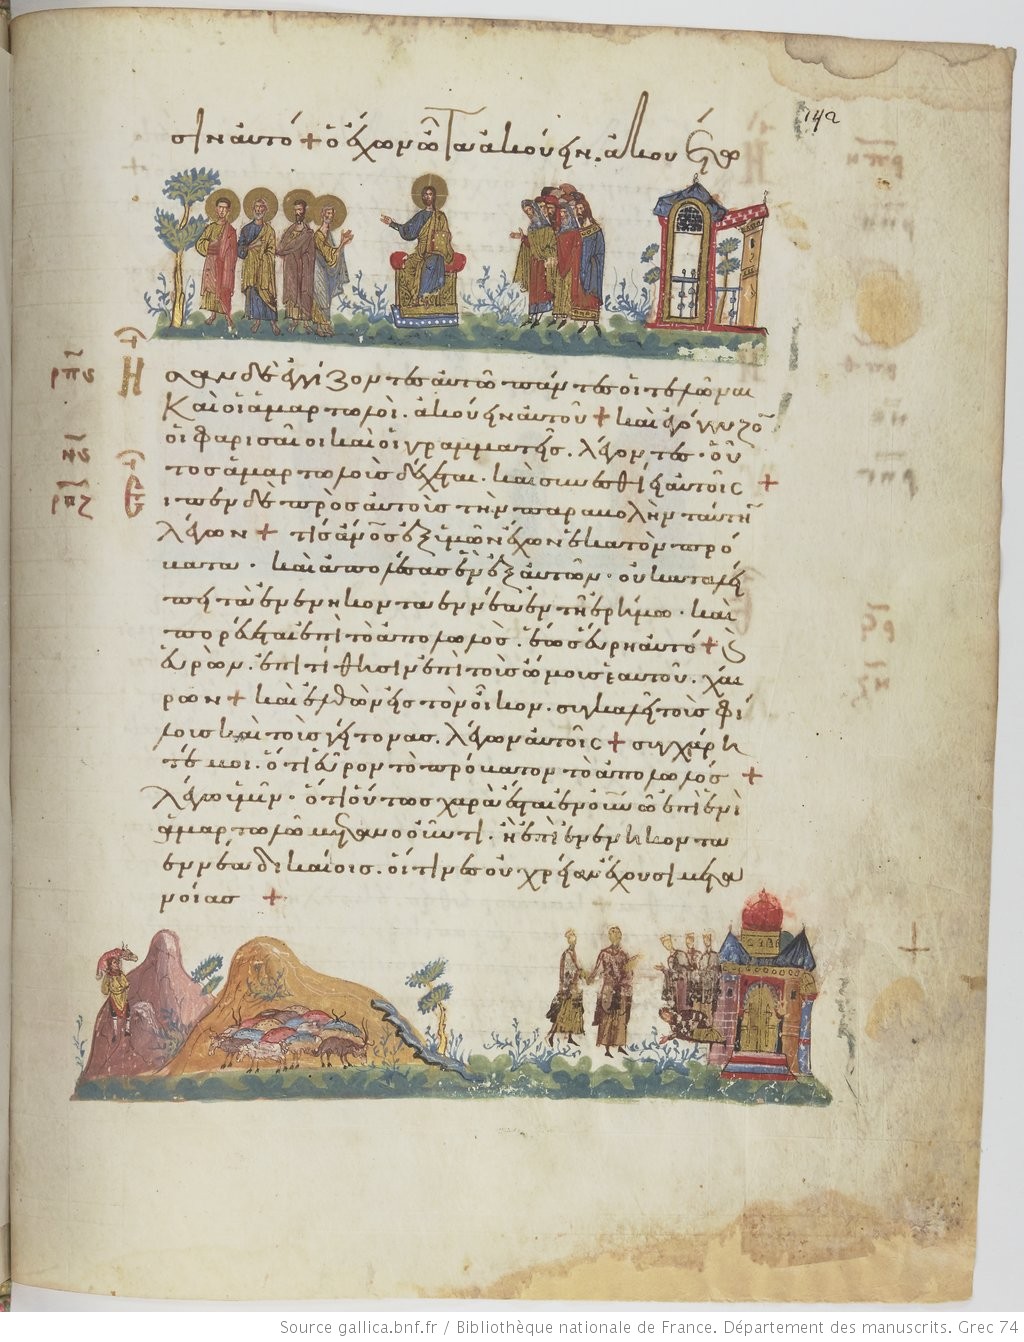 142
σιν αὐτό + ὁ ἔχων ὦτα ἀκούειν. ἀκουέτω
Ησαν δὲ ἐγγίζοντες αὐτῶ πάντες οἱ τελῶναι
καὶ οἱ ἁμαρτωλοὶ. ἀκούειν αὐτοῦ + καὶ ἐγόγγυζον
οἱ φαρισαῖοι καὶ οἱ γραμματεῖς. λέγοντες. οὗ
τος ἁμαρτωλοὺς δέχεται. καὶ συνεσθίει αὐτοῖς +
ρπς
νς
ρπζ
Εἶπεν δὲ πρὸς αὐτοὺς τὴν παραβολὴν ταύτην
λέγων + τίς ἄνος ἐξ ὑμῶν ἔχων ἑκατὸν πρό
βατα. καὶ ἀπολέσας ἓν ἐξ αὐτῶν. οὐ καταλεί
πει τὰ ἐνενηκονταεννέα ἐν τῆ ἐρήμω. καὶ
πορεύεται ἐπὶ τὸ ἀπολωλὸς. ἕως εὕρη αὐτό + καὶ
εὑρὼν. ἐπιτίθησιν ἐπὶ τοὺς ὤμους ἑαυτοῦ. χαί
ρων + καὶ ἐλθὼν εἰς τὸν οἶκον. συγκαλεῖ τοὺς φί
λους καὶ τοὺς γείτονας. λέγων αὐτοῖς + συγχάρη
τέ μοι. ὅτι εὗρον τὸ πρόβατον τὸ ἀπολωλός +
λέγω ὑμῖν. ὅτι οὕτως χαρὰ ἔσται ἐν οὐνῶ ἐπὶ ἑνὶ
ἁμαρτωλῶ μετανοοῦντι. ἢ ἐπὶ ἐνενηκοντα
εννέα δικαίοις. οἵτινες οὐ χρείαν ἔχουσι μετα
νοίας +
Source gallica.bnf.fr / Bibliothèque nationale de France. Département des manuscrits. Grec 74